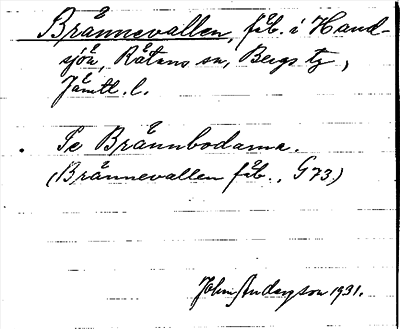 Brånnevallen, fäb. i Hand-
sjön, Rätans sn, Bergs tg,
Jämtl. l.
Se Brännbodarna.
(Brännevallen fäb., G73.)
John Andersson 1931.